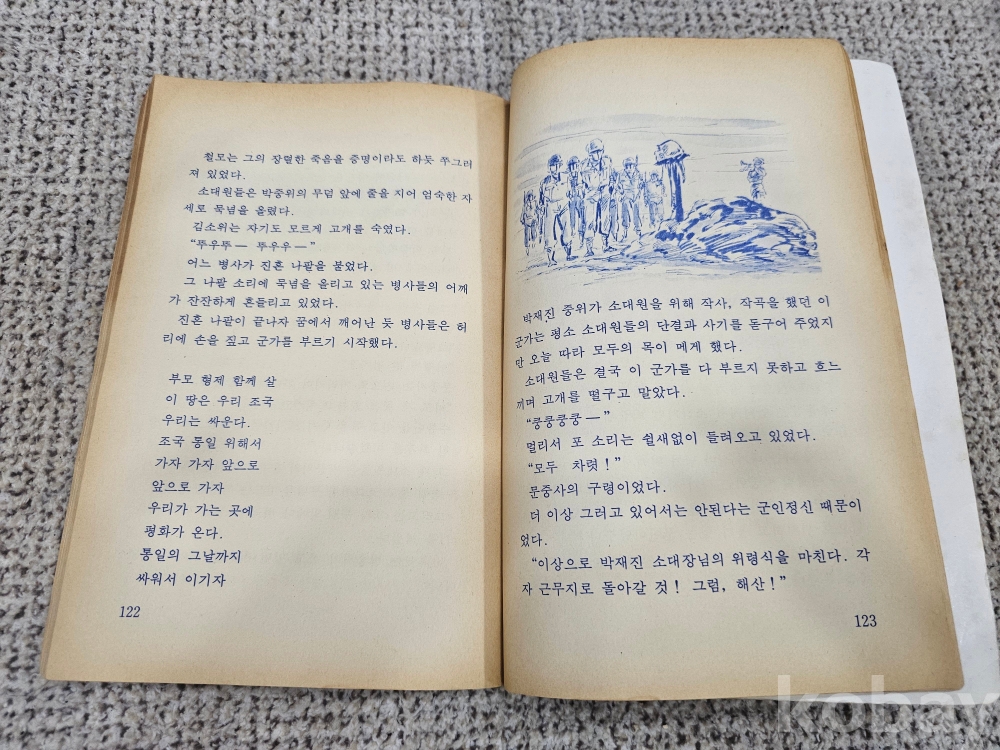 철모는 그의 장렬한 죽음을 증명이라도 하듯 쭈그러
져 있었다.
소대원들은 박중위의 무덤 앞에 줄을 지어 엄숙한 자
세로 묵념을 올렸다.
김소위는 자기도 모르게 고개를 숙였다.
“뚜우뚜— 뚜우우—”
어느 병사가 진혼 나팔을 불었다.
그 나팔 소리에 묵념을 올리고 있는 병사들의 어깨
가 잔잔하게 흔들리고 있었다.
진혼 나팔이 끝나자 꿈에서 깨어난 듯 병사들은 허
리에 손을 짚고 군가를 부르기 시작했다.
부모 형제 함께 살
이 땅은 우리 조국
우리는 싸운다.
조국 통일 위해서
가자 가자 앞으로
앞으로 가자
우리가 가는 곳에
평화가 온다.
통일의 그날까지
싸워서 이기자
122
박재진 중위가 소대원을 위해 작사, 작곡을 했던 이
군가는 평소 소대원들의 단결과 사기를 돋구어 주었지
만 오늘 따라 모두의 목이 메게 했다.
소대원들은 결국 이 군가를 다 부르지 못하고 흐느
끼며 고개를 떨구고 말았다.
“쿵쿵쿵쿵—”
멀리서 포 소리는 쉴새없이 들려오고 있었다.
“모두 차렷!”
문중사의 구령이었다.
더 이상 그러고 있어서는 안된다는 군인정신 때문이
었다.
“이상으로 박재진 소대장님의 위령식을 마친다. 각
자 근무지로 돌아갈 것! 그럼, 해산!”
123
kobay